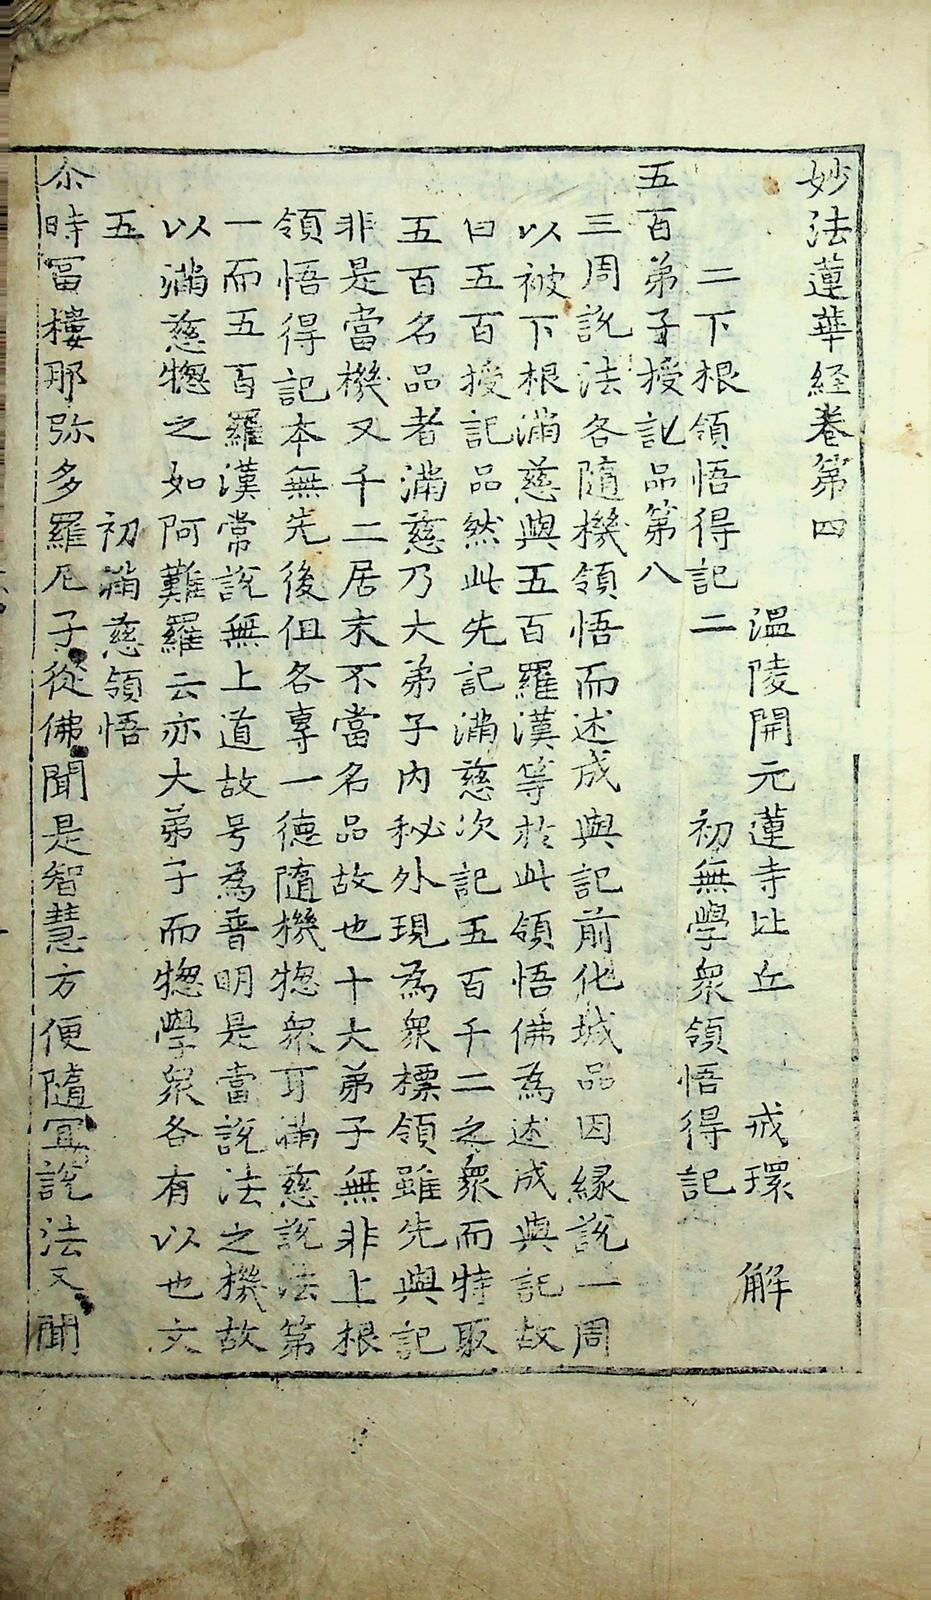 妙法蓮華経卷第四
溫陵開元蓮寺比丘 戒環 解
二下根領悟得記二 初無學衆領悟得記
五百弟子授記品第八
三周說法各隨機領悟而述成與記前化城品因縁說一周
以被下根滿慈與五百羅漢等於此領悟佛為述成與記故
曰五百授記品然此先記滿慈次記五百千二之衆而特取
五百名品者滿慈乃大弟子內秘外現為衆標領雖先與記
非是當機又千二居末不當名品故也十大弟子無非上根
領悟得記本無先後伹各專一德隨機揔衆耳滿慈說法第
一而五百羅漢常說無上道故号為普明是當說法之機故
以滿慈揔之如阿難羅云亦大弟子而揔學衆各有以也文
五 初滿慈領悟
尒時冨樓那弥多羅尼子從佛聞是智慧方便隨冝說法又聞